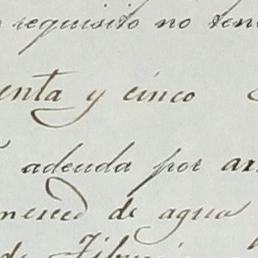 requisito no ten
enta y cinco
adeuda por ar
merced de agua
de